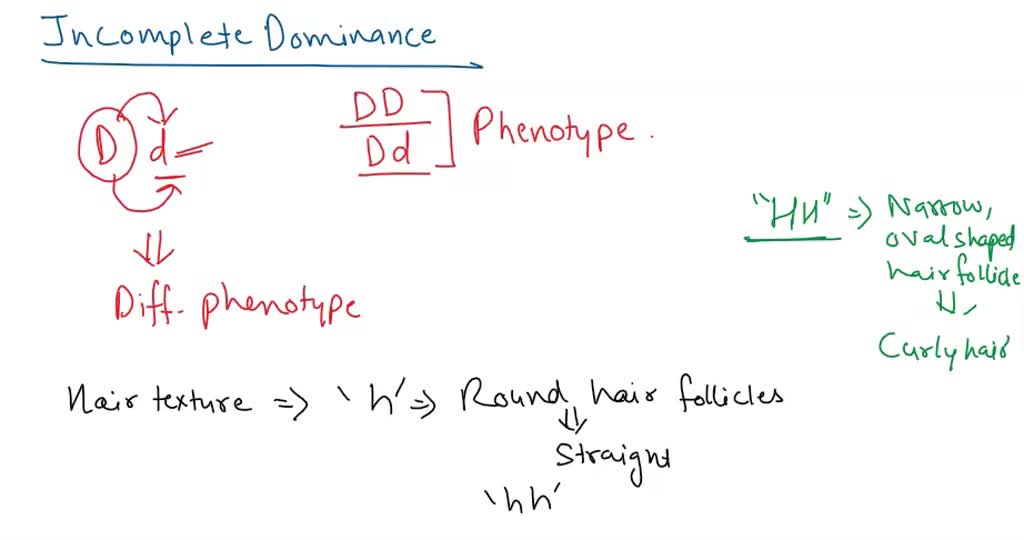 Incomplete Dominance
D d
DD
Dd
Phenotype.
Diff. phenotype
"HH" => Narrow,
oval shaped
hair follicle
Curly hair
Hair texture => 'h' => Round hair follicles
Straight
'hh'